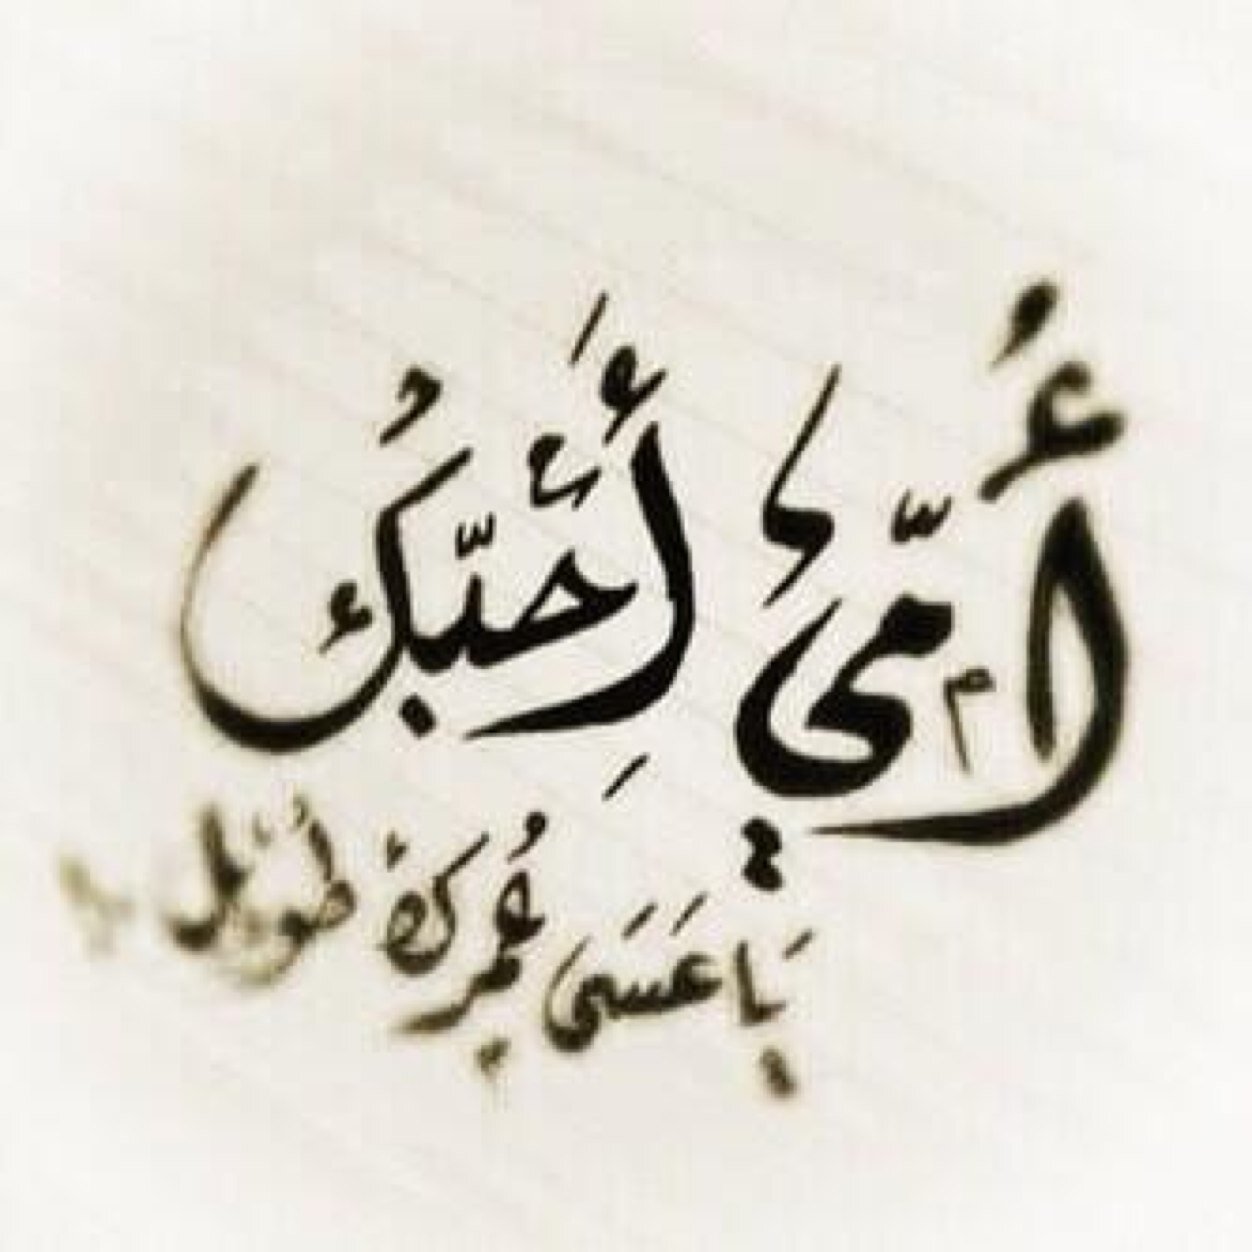 أُمّي أَحبّكُ
يَا عَسَى عُمرك طُويل